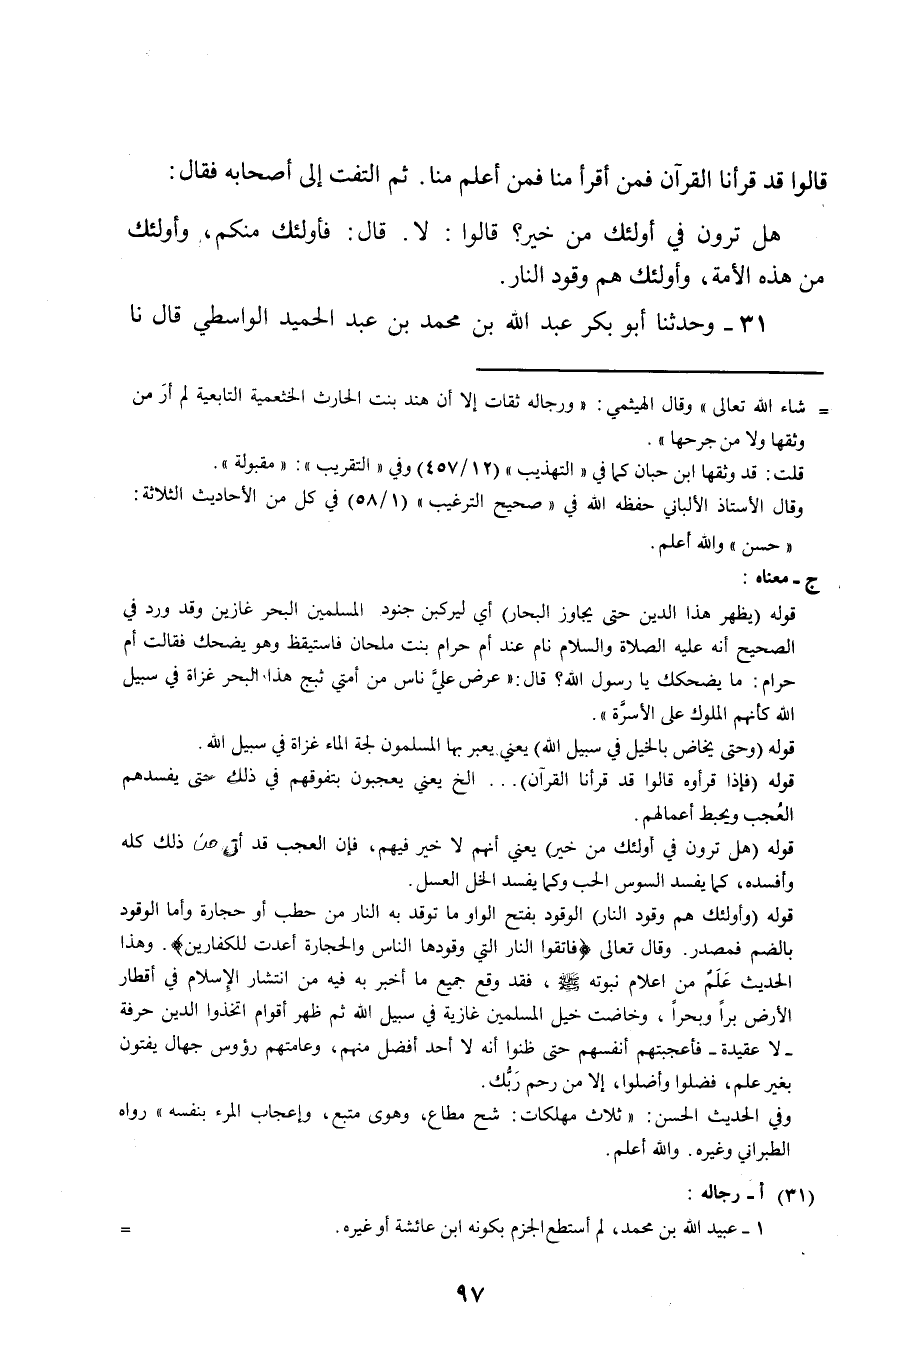 قالوا قد قرأنا القرآن فمن أقرأ منا فمن أعلم منا. ثم التفت إلى أصحابه فقال:
هل ترون في أولئك من خير؟ قالوا : لا. قال: فأولئك منكم، وأولئك
من هذه الأمة، وأولئك هم وقود النار.
٣١ ـ وحدثنا أبو بكر عبد الله بن محمد بن عبد الحميد الواسطي قال نا
= شاء الله تعالى » وقال الهيثمي: « ورجاله ثقات إلا أن هند بنت الحارث الخثعمية التابعية لم أرَ من
وثقها ولا من جرحها » .
قلت: قد وثقها ابن حبان كما في « التهذيب » (٤٥٧/١٢) وفي « التقريب »: « مقبولة ».
وقال الأستاذ الألباني حفظه الله في « صحيح الترغيب » (٥٨/١) في كل من الأحاديث الثلاثة:
« حسن » والله أعلم.
ج ـ معناه :
قوله (يظهر هذا الدين حتى يجاوز البحار) أي ليركبن جنود المسلمين البحر غازين وقد ورد في
الصحيح أنه عليه الصلاة والسلام نام عند أم حرام بنت ملحان فاستيقظ وهو يضحك فقالت أم
حرام: ما يضحكك يا رسول الله؟ قال:« عرض عليَّ ناس من أمتي ثبج هذا البحر غزاة في سبيل
الله كأنهم الملوك على الأسرَّة ».
قوله (وحتى يخاض بالخيل في سبيل الله) يعني يعبر بها المسلمون لجة الماء غزاة في سبيل الله .
قوله (فإذا قرأوه قالوا قد قرأنا القرآن)... الخ يعني يعجبون بتفوقهم في ذلك حتى يفسدهم
العُجب ويحبط أعمالهم.
قوله (هل ترون في أولئك من خير) يعني أنهم لا خير فيهم، فإن العجب قد أتى ذلك كله
وأفسده، كما يفسد السوس الحب وكما يفسد الخل العسل.
قوله (وأولئك هم وقود النار) الوقود بفتح الواو ما توقد به النار من حطب أو حجارة وأما الوقود
بالضم فمصدر. وقال تعالى ﴿فاتقوا النار التي وقودها الناس والحجارة أعدت للكفارين﴾. وهذا
الحديث عَلَمٌ من اعلام نبوته ﷺ ، فقد وقع جميع ما أخبر به فيه من انتشار الإسلام في أقطار
الأرض براً وبحراً ، وخاضت خيل المسلمين غازية في سبيل الله ثم ظهر أقوام اتخذوا الدين حرفة
ـ لا عقيدة ـ فأعجبتهم أنفسهم حتى ظنوا أنه لا أحد أفضل منهم، وعامتهم رؤوس جهال يفتون
بغير علم، فضلوا وأضلوا، إلا من رحم رَبُّك.
وفي الحديث الحسن: « ثلاث مهلكات: شح مطاع، وهوى متبع، وإعجاب المرء بنفسه » رواه
الطبراني وغيره. والله أعلم.
(٣١) أ ـ رجاله :
١ ـ عبيد الله بن محمد، لم أستطع الجزم بكونه ابن عائشة أو غيره. =
٩٧